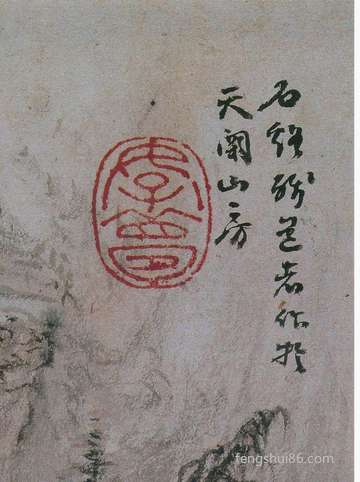 石谿殘道者作於
天闕山房
fengshui86.com